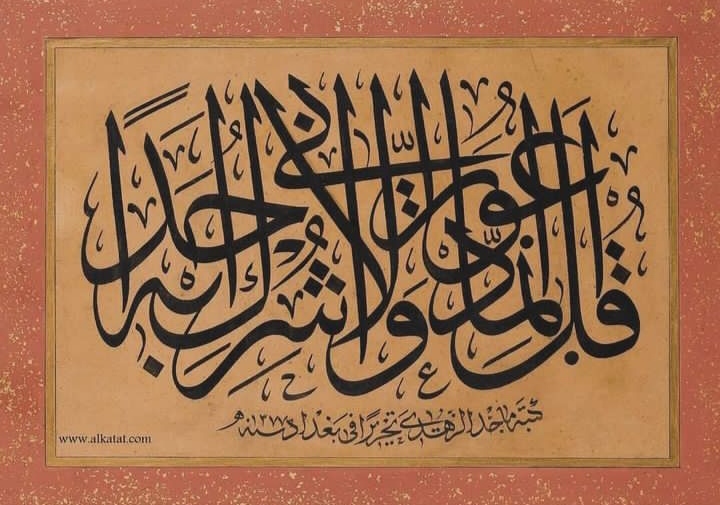 قل إنما أدعو ربي ولا أشرك به أحدًا
كتبه ماجد الزهدي تحريرًا في بغداد سنه ١٣٧٧ هـ
www.alkatat.com